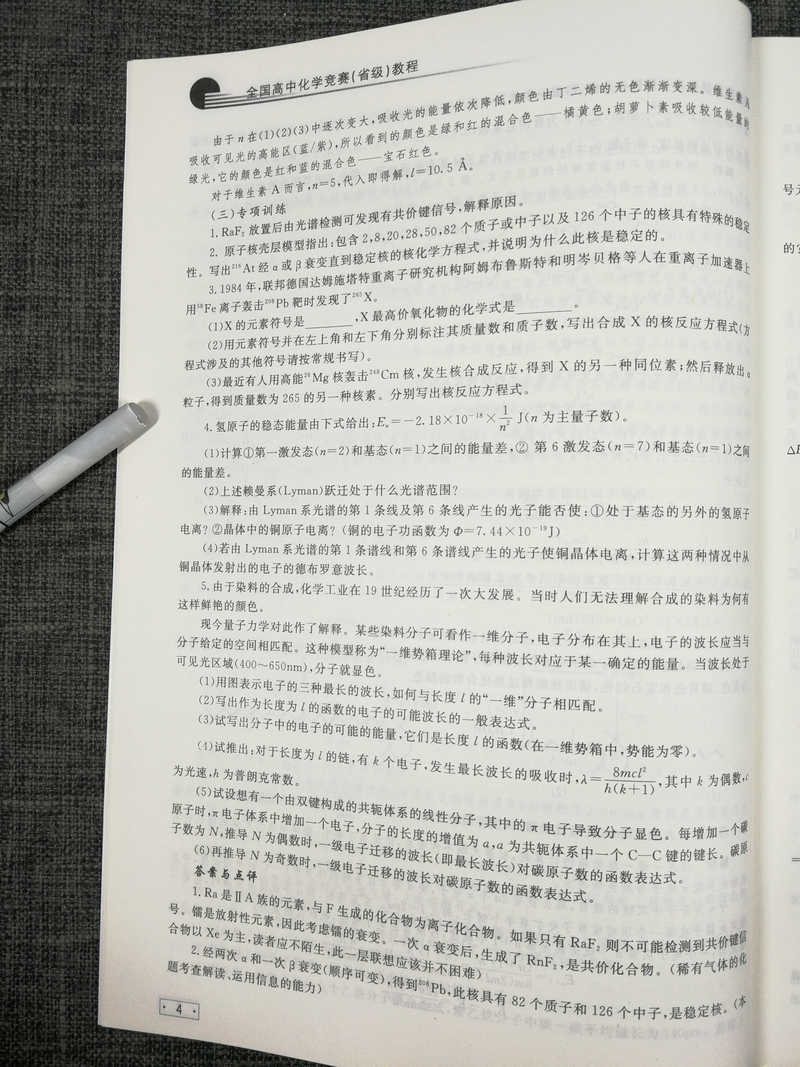 全国高中化学竞赛(省级)教程
由于n在(1)(2)(3)中逐次变大,吸收光的能量依次降低,颜色由丁二烯的无色渐渐变深。维生素A
吸收可见光的高能区(蓝/紫),所以看到的颜色是绿和红的混合色——橘黄色;胡萝卜素吸收较低能量的
绿光,它的颜色是红和蓝的混合色——宝石红色。
对于维生素A而言,n=5,代入即得解,l=10.5 Å。
(三)专项训练
1.RaF₂放置后由光谱检测可发现有共价键信号,解释原因。
2. 原子核壳层模型指出:包含2,8,20,28,50,82个质子或中子以及126个中子的核具有特殊的稳定
性。写出²¹⁶At经α或β衰变直到稳定核的核化学方程式,并说明为什么此核是稳定的。
3.1984年,联邦德国达姆施塔特重离子研究机构阿姆布鲁斯特和明岑贝格等人在重离子加速器上
用⁵⁸Fe离子轰击²⁰⁸Pb靶时发现了²⁶⁵X。
(1)X的元素符号是______,X最高价氧化物的化学式是______。
(2)用元素符号并在左上角和左下角分别标注其质量数和质子数,写出合成X的核反应方程式(方
程式涉及的其他符号请按常规书写)。
(3)最近有人用高能²⁶Mg核轰击²⁴⁸Cm核,发生核合成反应,得到X的另一种同位素;然后释放出α
粒子,得到质量数为265的另一种核素。分别写出核反应方程式。
4.氢原子的稳态能量由下式给出:Eₙ=−2.18×10⁻¹⁸×1/n² J(n为主量子数)。
(1)计算①第一激发态(n=2)和基态(n=1)之间的能量差,② 第6激发态(n=7)和基态(n=1)之间
的能量差。
(2)上述赖曼系(Lyman)跃迁处于什么光谱范围?
(3)解释:由Lyman光谱的第1条线及第6条线产生的光子能否使:①处于基态的另外的氢原子
电离?②晶体中的铜原子电离?(铜的电子功函数为Φ=7.44×10⁻¹⁹J)
(4)若由Lyman系光谱的第1条谱线和第6条谱线产生的光子使铜晶体电离,计算这两种情况中从
铜晶体发射出的电子的德布罗意波长。
5.由于染料的合成,化学工业在19世纪经历了一次大发展。当时人们无法理解合成的染料为何有
这样鲜艳的颜色。
现今量子力学对此作了解释。某些染料分子可看作一维分子,电子分布在其上,电子的波长应当与
分子给定的空间相匹配。这种模型称为“一维势箱理论”,每种波长对应于某一确定的能量。当波长处于
可见光区域(400~650nm),分子就显色。
(1)用图表示电子的三种最长的波长,如何与长度l的“一维”分子相匹配。
(2)写出作为长度为l的函数的电子的可能波长的一般表达式。
(3)试写出分子中的电子的可能的能量,它们是长度l的函数(在一维势箱中,势能为零)。
(4)试推出:对于长度为l的链,有k个电子,发生最长波长的吸收时,λ=8mcl²/h(k+1),其中k为偶数,c
为光速,h为普朗克常数。
(5)试设想有一个由双键构成的共轭体系的线性分子,其中的π电子导致分子显色。每增加一个碳
原子时,π电子体系中增加一个电子,分子的长度的增值为a,a为共轭体系中一个C—C键的键长。碳原
子数为N,推导N为偶数时,一级电子迁移的波长(即最长波长)对碳原子数的函数表达式。
(6)再推导N为奇数时,一级电子迁移的波长对碳原子数的函数表达式。
答案与点评
1.Ra是ⅡA族的元素,与F生成的化合物为离子化合物。如果只有RaF₂则不可能检测到共价键信
号。镭是放射性元素,因此考虑镭的衰变。一次α衰变后,生成了RnF₂,是共价化合物。(稀有气体的化
合物以Xe为主,读者应不陌生,此一层联想应该并不困难)
2.经两次α和一次β衰变(顺序可变),得到²⁰⁸Pb,此核具有82个质子和126个中子,是稳定核。(本
题考查解读、运用信息的能力)
· 4 ·